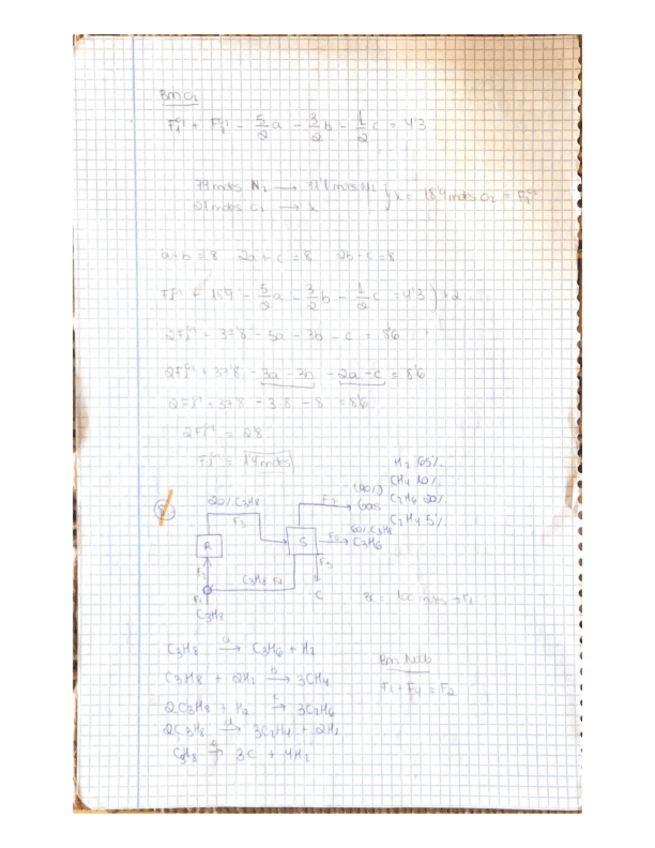 Bm O₂
F₁^O₂ + F₂^O₂ - 5/2 a - 3/2 b - 1/2 c = 4'3
79 moles N₂ → 71'1 moles N₂
21 moles O₂ → x } x = 18'9 moles O₂ = F₂^O₂
a+b = 8 2a + c = 8 2b - c = 8
F₁^O₂ + 18'9 - 5/2 a - 3/2 b - 1/2 c = 4'3 ) × 2
2F₁^O₂ + 37'8 - 5a - 3b - c = 8'6
2F₁^O₂ + 37'8 - 3a - 3b - 2a - c = 8'6
2F₁^O₂ + 37'8 - 3·8 - 8 = 8'6
2F₁^O₂ = 28
F₁^O₂ = 14 moles
8.
20% C₃H₈
F₃
R
F₂
F₁
C₃H₈
C₃H₈ F₄
S
F₅
C
F₆
60% C₃H₈
C₃H₆
F₇
(40%)
Gas
H₂ 65%
CH₄ 10%
C₂H₆ 20%
C₂H₄ 5%
BC = 100 moles → F₁
C₃H₈ →a C₃H₆ + H₂
C₃H₈ + 2H₂ →b 3CH₄
2C₃H₈ + H₂ →c 3C₂H₆
2C₃H₈ →d 3C₂H₄ + 2H₂
C₃H₈ →e 3C + 4H₂
Bm Nudo
F₁ + F₄ = F₂